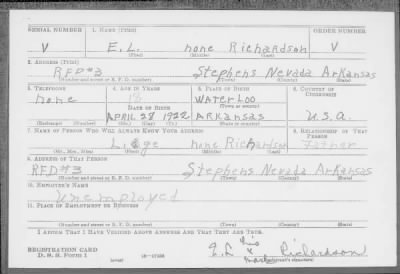 SERIAL NUMBER 1. NAME (Print) ORDER NUMBER
V E.L. none Richardson V
(First) (Middle) (Last)
2. ADDRESS (Print)
RFD#3 Stephens Nevada Arkansas
(Number and street or R. F. D. number) (Town) (County) (State)
3. TELEPHONE 4. AGE IN YEARS 5. PLACE OF BIRTH 6. COUNTRY OF CITIZENSHIP
none Waterloo
DATE OF BIRTH (Town or county)
APRIL 28 1922 Arkansas U.S.A.
(Exchange) (Number) (Mo.) (Day) (Yr.) (State or country)
7. NAME OF PERSON WHO WILL ALWAYS KNOW YOUR ADDRESS 8. RELATIONSHIP OF THAT PERSON
Lige none Richardson Father
(Mr., Mrs., Miss) (First) (Middle) (Last)
9. ADDRESS OF THAT PERSON
RFD#3 Stephens Nevada Arkansas
(Number and street or R. F. D. number) (Town) (County) (State)
10. EMPLOYER'S NAME
Unemployed
11. PLACE OF EMPLOYMENT OR BUSINESS
(Number and street or R. F. D. number) (Town) (County) (State)
I AFFIRM THAT I HAVE VERIFIED ABOVE ANSWERS AND THAT THEY ARE TRUE.
REGISTRATION CARD E.L. his x mark Richardson
D. S. S. Form 1 (Registrant's signature)